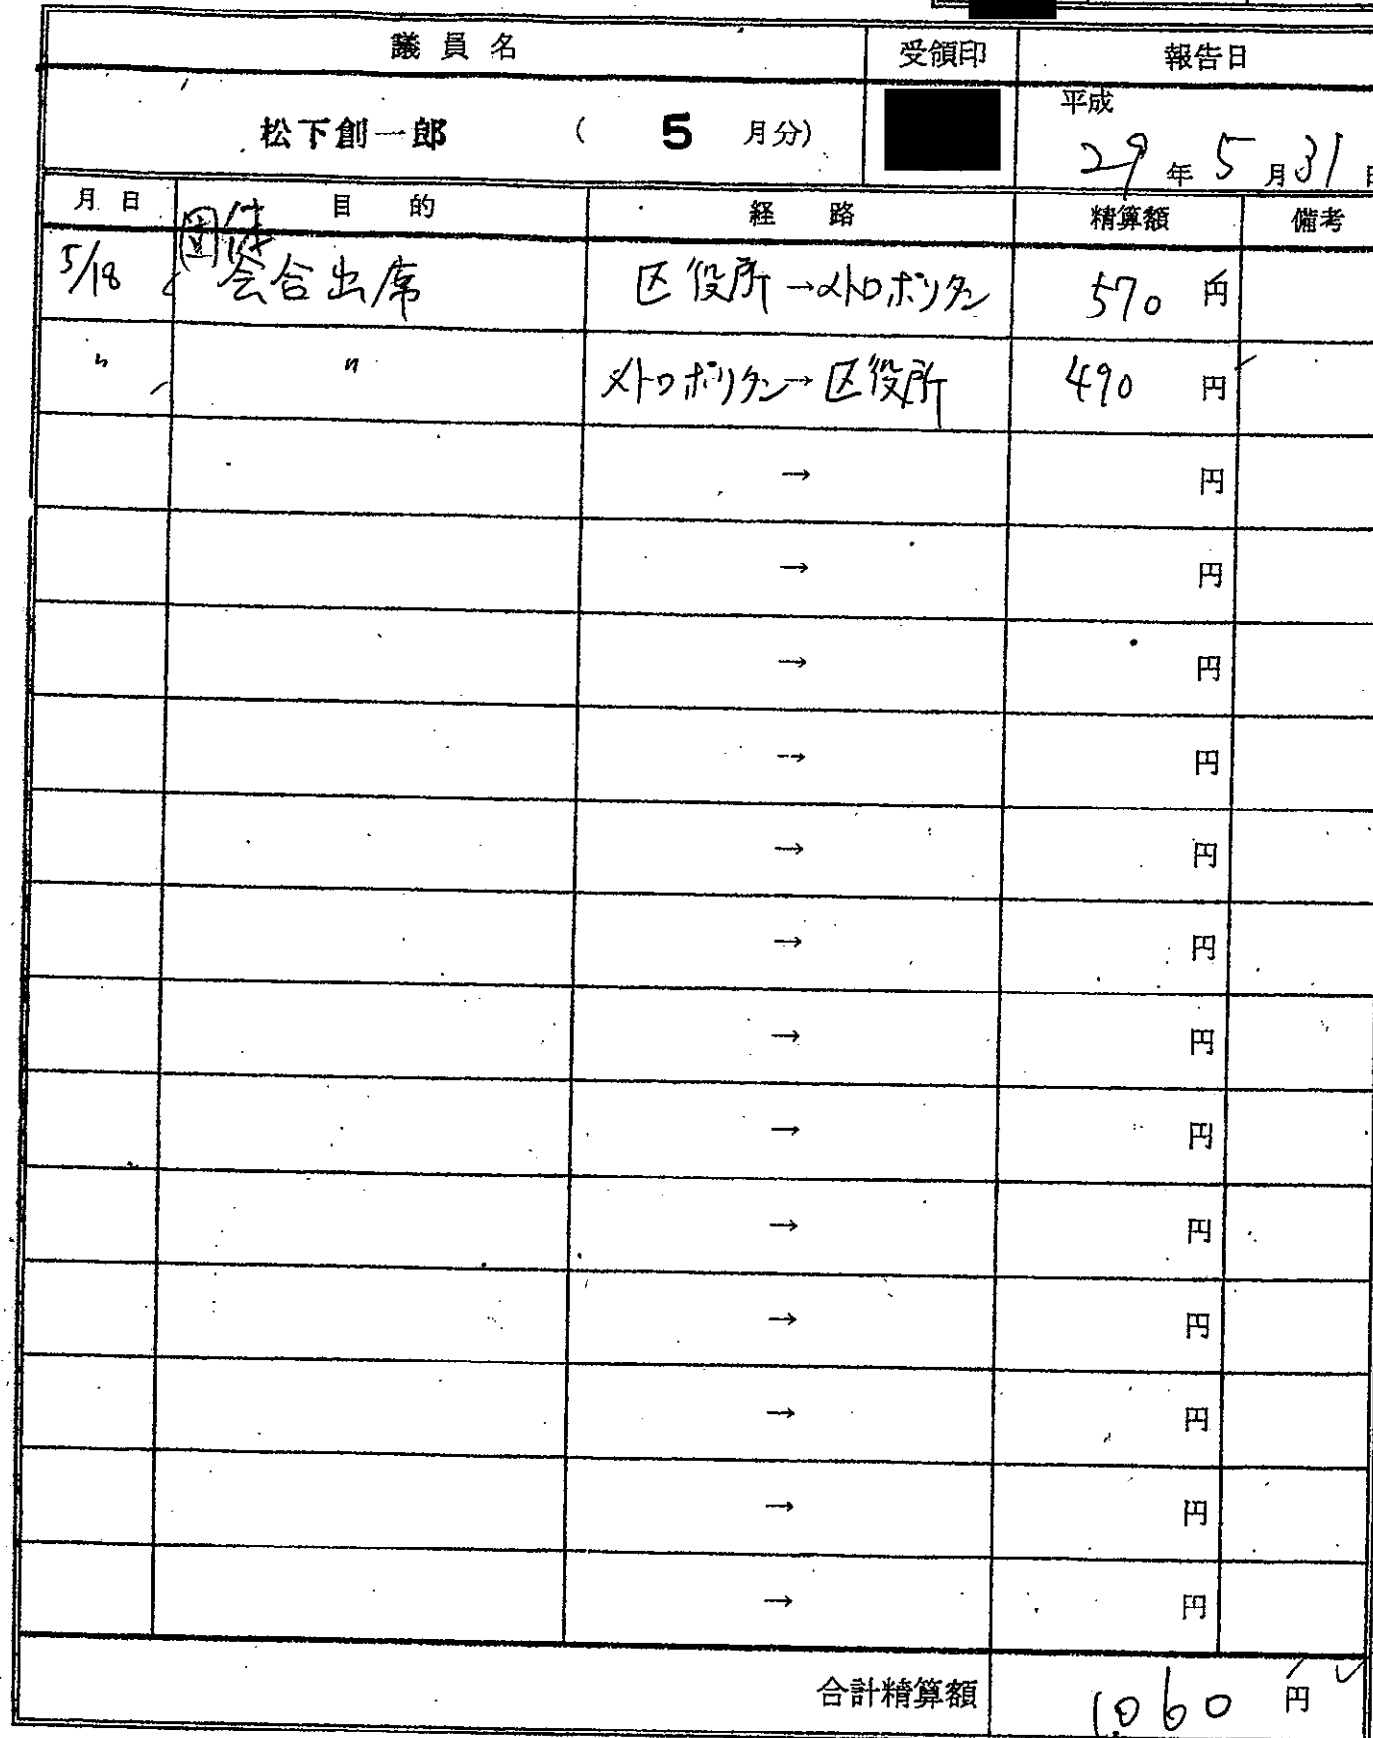 議員名 受領印 報告日
松下創一郎 ( 5 月分) 平成 29 年 5 月 31 日
月日 目的 経路 精算額 備考
5/18 団体会合出席 区役所→メトロポリタン 570 円
〃 〃 メトロポリタン→区役所 490 円
→ 円
→ 円
→ 円
→ 円
→ 円
→ 円
→ 円
→ 円
→ 円
→ 円
→ 円
→ 円
→ 円
合計精算額 1,060 円